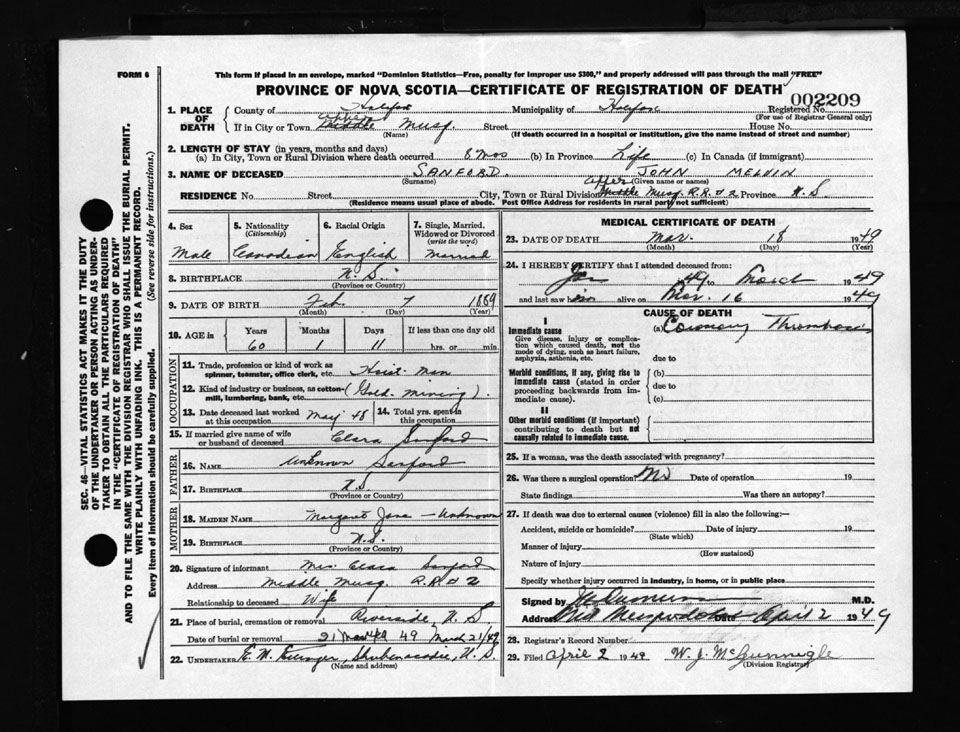 FORM 6
This form if placed in an envelope, marked "Dominion Statistics—Free, penalty for improper use $300," and properly addressed will pass through the mail "FREE"
PROVINCE OF NOVA SCOTIA—CERTIFICATE OF REGISTRATION OF DEATH
002209
1. PLACE OF DEATH County of Halifax Municipality of Halifax Registered No.
(For use of Registrar General only)
If in City or Town Upper Middle Musq. Street House No.
(Name) (If death occurred in a hospital or institution, give the name instead of street and number)
2. LENGTH OF STAY (in years, months and days)
(a) In City, Town or Rural Division where death occurred 8 mos (b) In Province Life (c) In Canada (if immigrant)
3. NAME OF DECEASED SANFORD. JOHN MELVIN
(Surname) (Given name or names)
RESIDENCE No. Street City, Town or Rural Division Upper Middle Musq. R.R. # 2 Province N. S
(Residence means usual place of abode. Post Office Address for residents in rural parts not sufficient)
4. Sex Male
5. Nationality (Citizenship) Canadian
6. Racial Origin English
7. Single, Married, Widowed or Divorced (write the word) Married
8. BIRTHPLACE N. S.
(Province or Country)
9. DATE OF BIRTH Feb. 7 1889
(Month) (Day) (Year)
10. AGE in Years Months Days If less than one day old
60 1 11 hrs. or min.
OCCUPATION
11. Trade, profession or kind of work as spinner, teamster, office clerk, etc. Hoist Man
12. Kind of industry or business, as cotton-mill, lumbering, bank, etc. (Gold. Mining).
13. Date deceased last worked at this occupation May 48
14. Total yrs. spent in this occupation
15. If married give name of wife or husband of deceased Clara Sanford
FATHER
16. NAME Unknown Sanford
17. BIRTHPLACE N.S
(Province or Country)
MOTHER
18. MAIDEN NAME Margaret Jane — Unknown
19. BIRTHPLACE N.S.
(Province or Country)
20. Signature of informant Mrs. Clara Sanford
Address Middle Musq. R.R # 2
Relationship to deceased Wife
21. Place of burial, cremation or removal Riverside, N. S
Date of burial or removal 21 49 March 21/49
22. UNDERTAKER Shubenacadie, N. S.
(Name and address)
MEDICAL CERTIFICATE OF DEATH
23. DATE OF DEATH Mar. 18 1949
(Month) (Day) (Year)
24. I HEREBY CERTIFY that I attended deceased from:
Jan 1949 to March 1949
and last saw him alive on Mar. 16 1949
CAUSE OF DEATH
I
Immediate cause
Give disease, injury or complication which caused death, not the mode of dying, such as heart failure, asphyxia, asthenia, etc.
(a) Coronary Thrombosis
due to
Morbid conditions, if any, giving rise to immediate cause (stated in order proceeding backwards from immediate).
(b)
due to
(c)
II
Other morbid conditions (if important) contributing to death but not causally related to immediate cause.
25. If a woman, was the death associated with pregnancy?
26. Was there a surgical operation? No Date of operation 19
State findings Was there an autopsy?
27. If death was due to external causes (violence) fill in also the following:—
Accident, suicide or homicide? Date of injury 19
(State which)
Manner of injury
(How sustained)
Nature of injury
Specify whether injury occurred in industry, in home, or in public place
Signed by M.D.
Address Mid Musquodoboit Date April 2 1949
28. Registrar's Record Number
29. Filed April 2 1949 W. J. McGunnigle
(Division Registrar)
SEC. 46—VITAL STATISTICS ACT MAKES IT THE DUTY
OF THE UNDERTAKER OR PERSON ACTING AS UNDER-
TAKER TO OBTAIN ALL THE PARTICULARS REQUIRED
IN THE "CERTIFICATE OF REGISTRATION OF DEATH"
AND TO FILE THE SAME WITH THE DIVISION REGISTRAR WHO SHALL ISSUE THE BURIAL PERMIT.
WRITE PLAINLY WITH UNFADING INK. THIS IS A PERMANENT RECORD.
Every item of information should be carefully supplied. (See reverse side for instructions.)